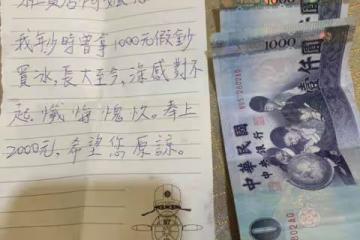 我年少時曾拿1000元假鈔
買冰，長大至今，深感對不
起，懺悔愧疚。奉上
2000元，希望您原諒。
1000
1000
壹仟圓
中華民國
中央銀行